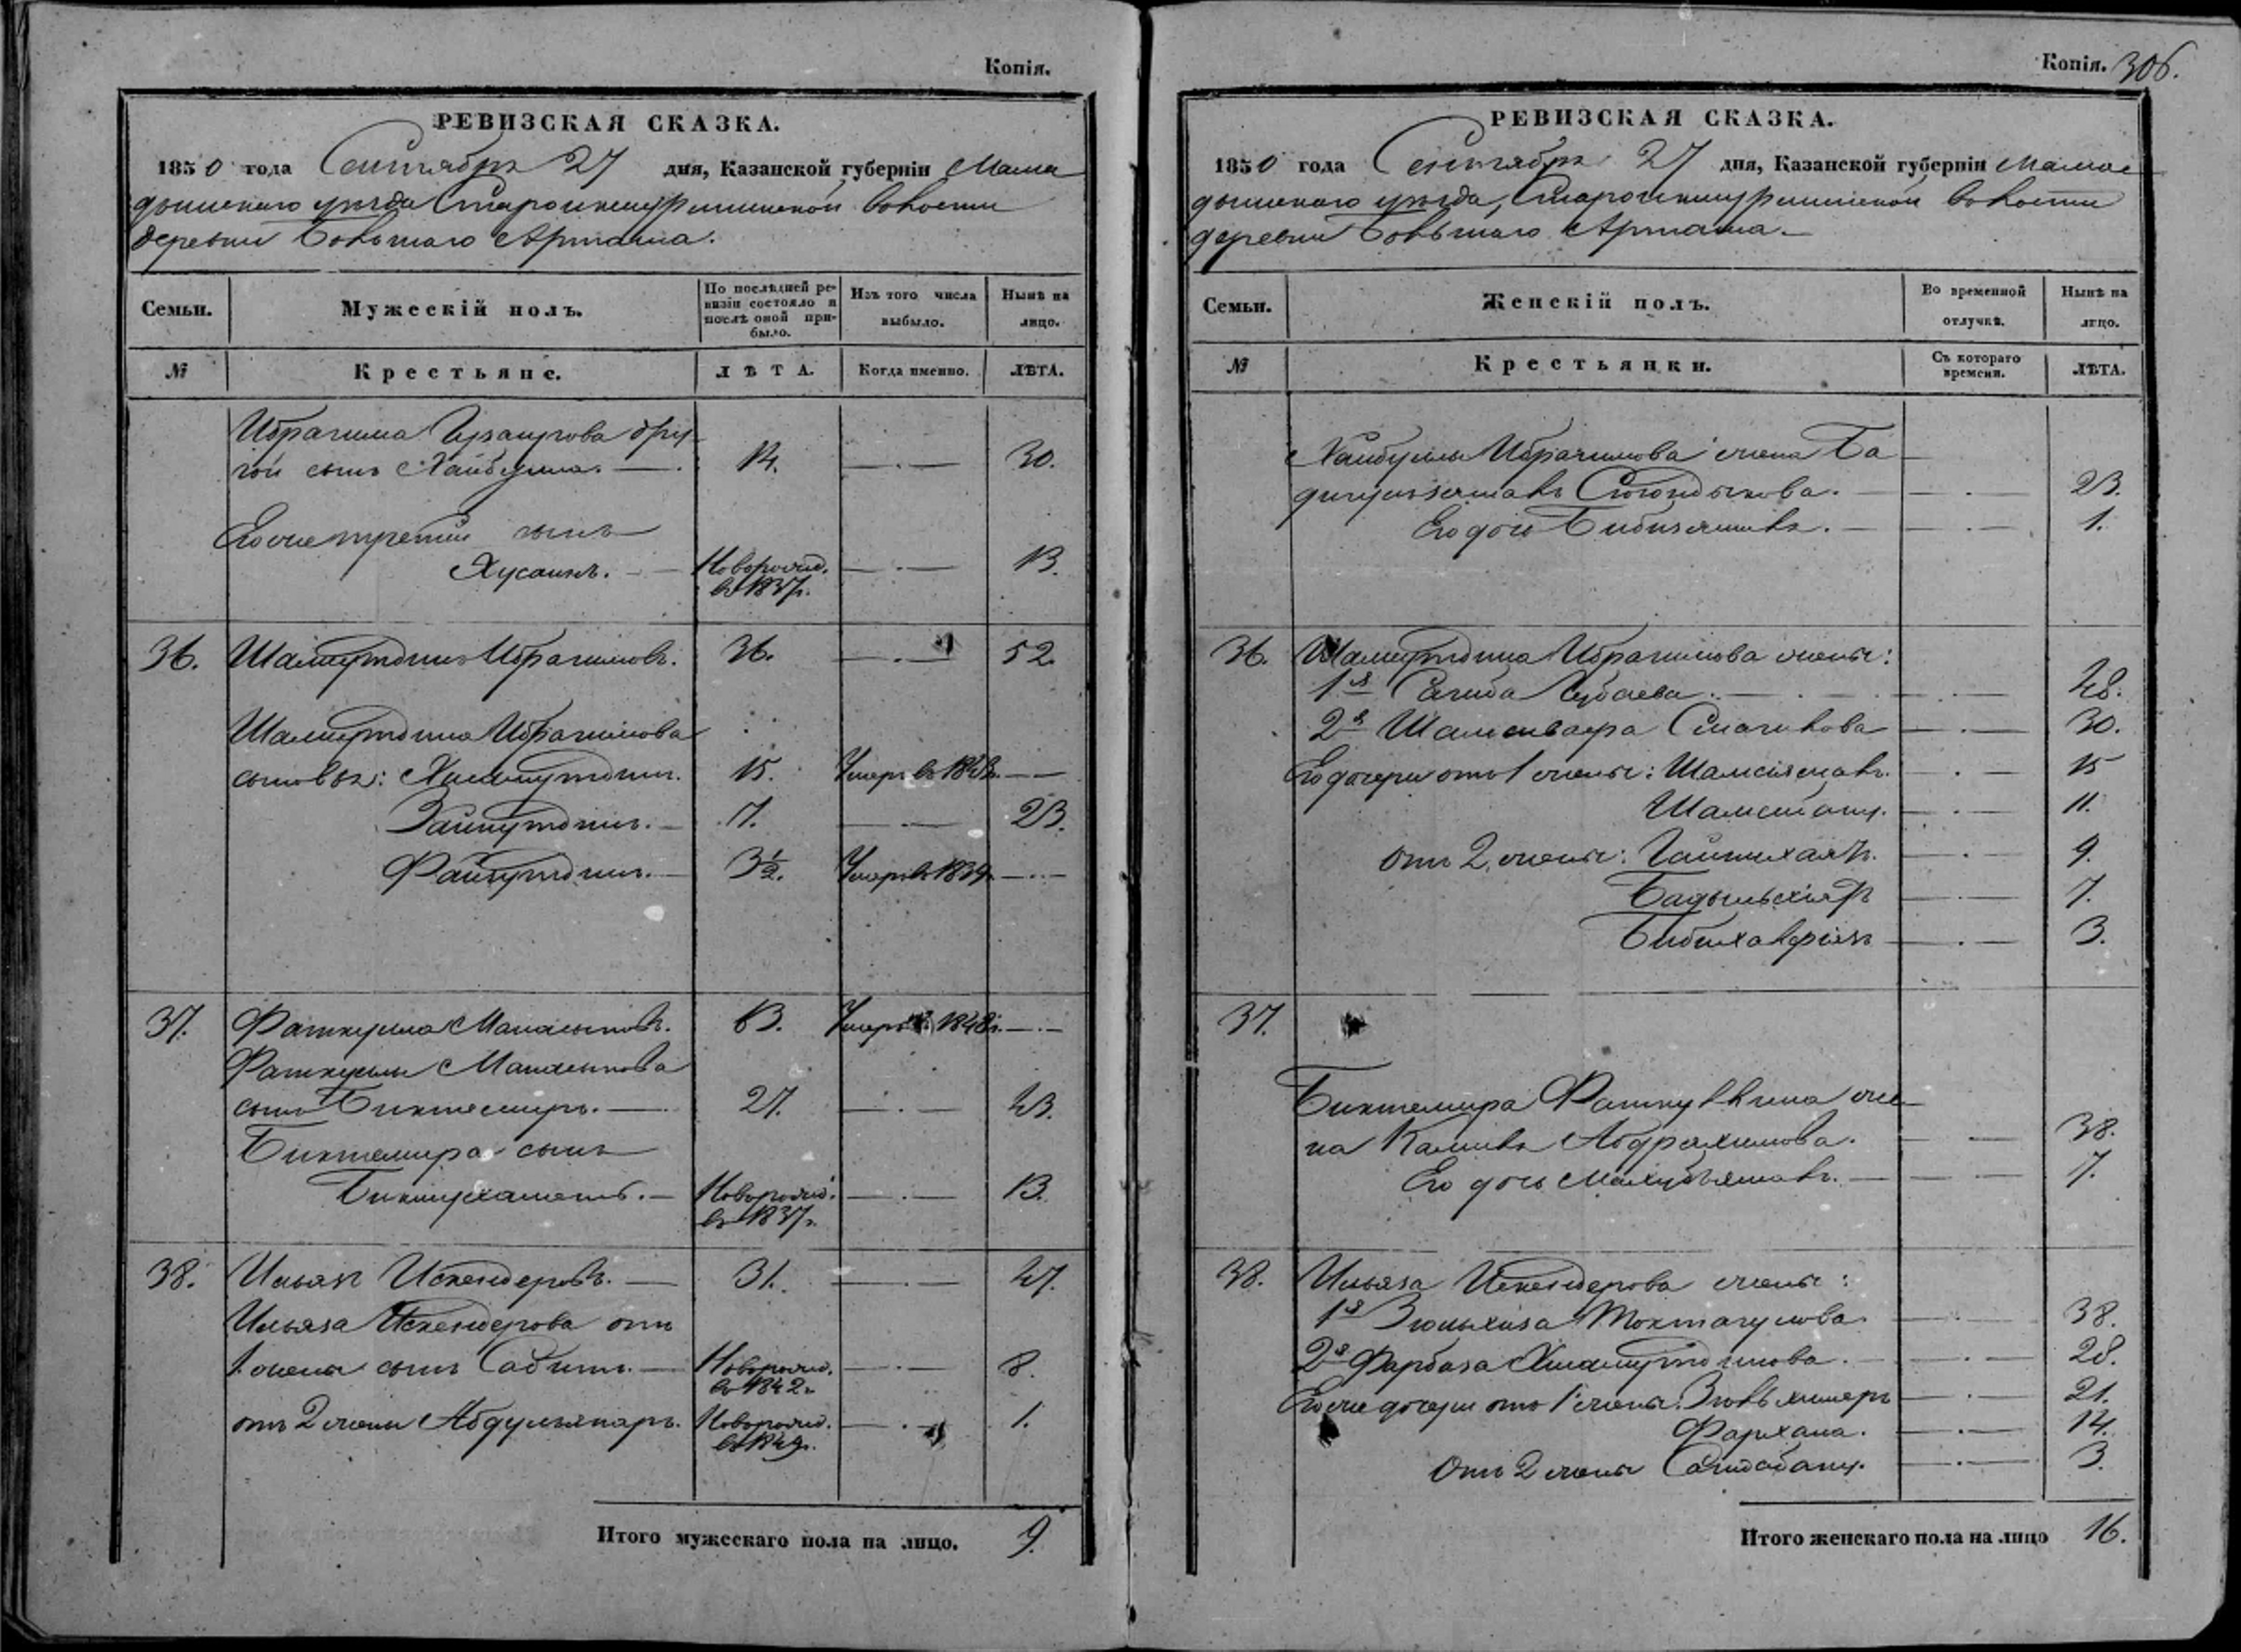 Копія.
РЕВИЗСКАЯ СКАЗКА.
1850 года Сентября 27 дня, Казанской губерніи Мама
дышскаго уѣзда Старошкинурминской волости
деревни Большаго Арташа.
Семьи. Мужескій полъ. По послѣдней ре- Изъ того числа Нынѣ на
визіи состояло и
послѣ оной при- выбыло. лицо.
было.
№ Крестьяне. ЛѢТА. Когда именно. ЛѢТА.
Ибрагима дру
гой сынъ Хайбулла. 14. 30.
Егоже третій сынъ
Хусаинъ. Новорожд. 13.
въ 1837г.
36. Шамшутдинъ Ибрагимовъ. 36. 52.
Шамшутдина Ибрагимова
сыновья: 15. Умеръ въ
Зайнутдинъ. 7. 23.
Файзутдинъ. 3½. Умеръ въ 1839.
37. Фаткулла 63. Умеръ въ 1848г.
Фаткуллы
сынъ Биктемиръ. 27. 43.
Биктемира сынъ
Бикмухаметъ. Новорожд. 13.
въ 1837г.
38. Ильязъ Искендеровъ. 31. 47.
Ильяза Искендерова отъ
1 жены сынъ Сабитъ. Новорожд. 8.
въ 1842г.
отъ 2 жены Абдулъяпаръ. Новорожд. 1.
въ 1849г.
Итого мужескаго пола на лицо. 9.
Копія. 306.
РЕВИЗСКАЯ СКАЗКА.
1850 года Сентября 27 дня, Казанской губерніи Мама
дышскаго уѣзда, Старошкинурминской волости
деревни Большаго Арташа.
Семьи. Женскій полъ. Во временной Нынѣ на
отлучкѣ. лицо.
№ Крестьянки. Съ котораго ЛѢТА.
времени.
Хайбуллы Ибрагимова жена Ба
Сююндюкова. 23.
Его дочь Бибизямалъ. 1.
36. Шамшутдина Ибрагимова жены:
1я Сагида Губаева. 48.
2я Смагилова 30.
Его дочери отъ 1 жены: Шамсіямалъ. 15
Шамсибану. 11.
отъ 2 жены: 9.
7.
3.
37.
Биктемира Фаткуллина же
на Камиля Абдрахимова. 38.
Его дочь Махубъямалъ. 7.
38. Ильяза Искендерова жены:
1я Токтагулова. 38.
2я 28.
Егоже дочери отъ 1 жены: 21.
Фархана. 14.
Отъ 2 жены Сагидабану. 3.
Итого женскаго пола на лицо 16.